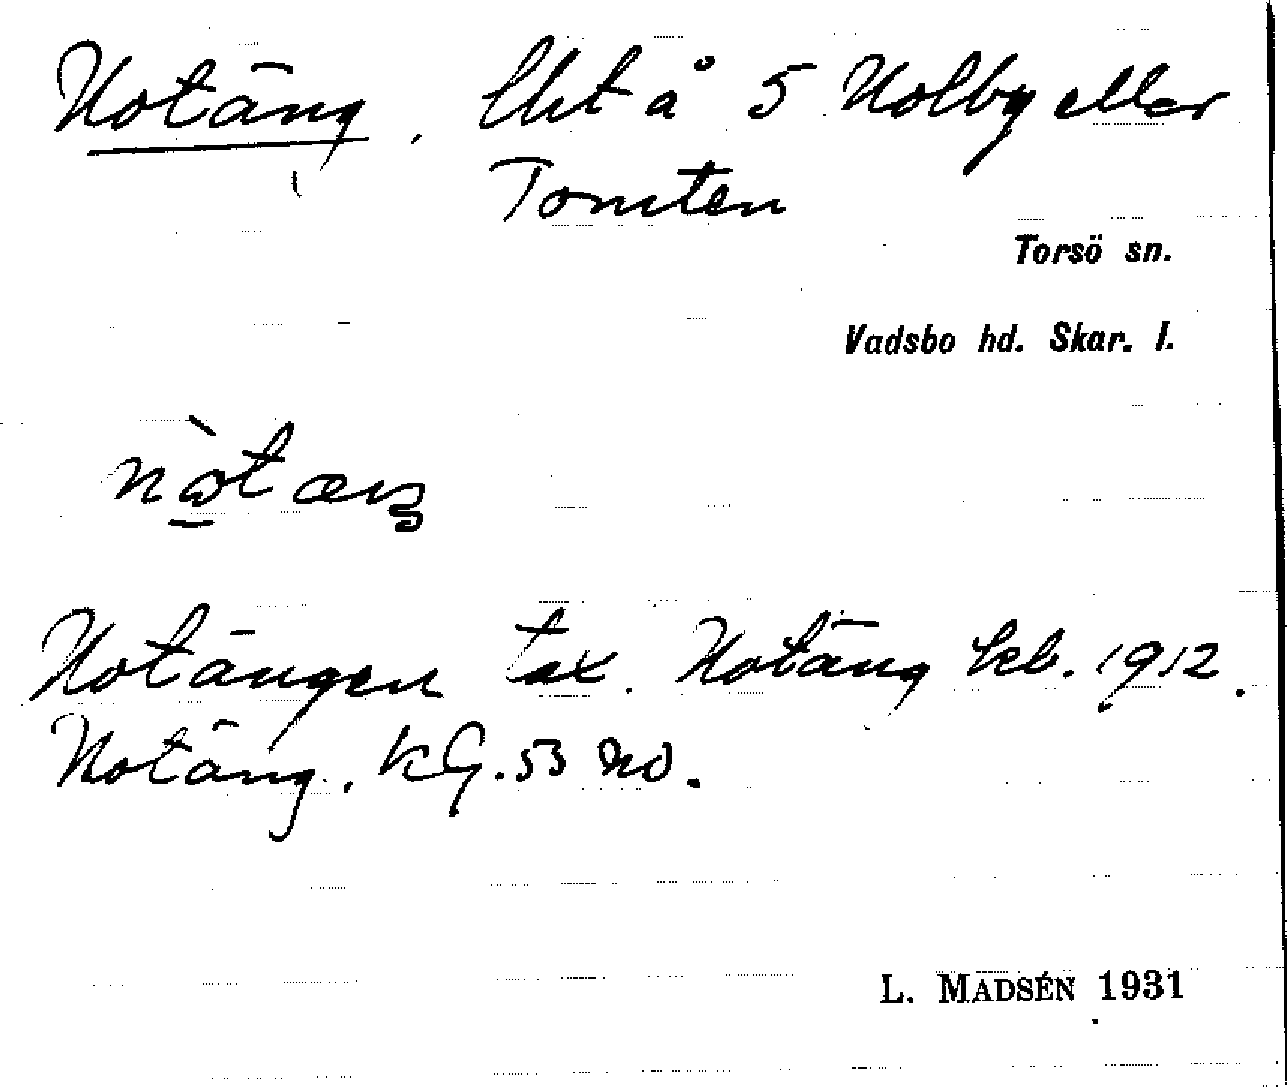 Notäng, lht å 5 Nolby eller
Tomten
Torsö sn.
Vadsbo hd. Skar. l.
Notängen tax. Notäng kb. 1912.
Notäng. kG. 53 NO.
L. MADSÉN 1931